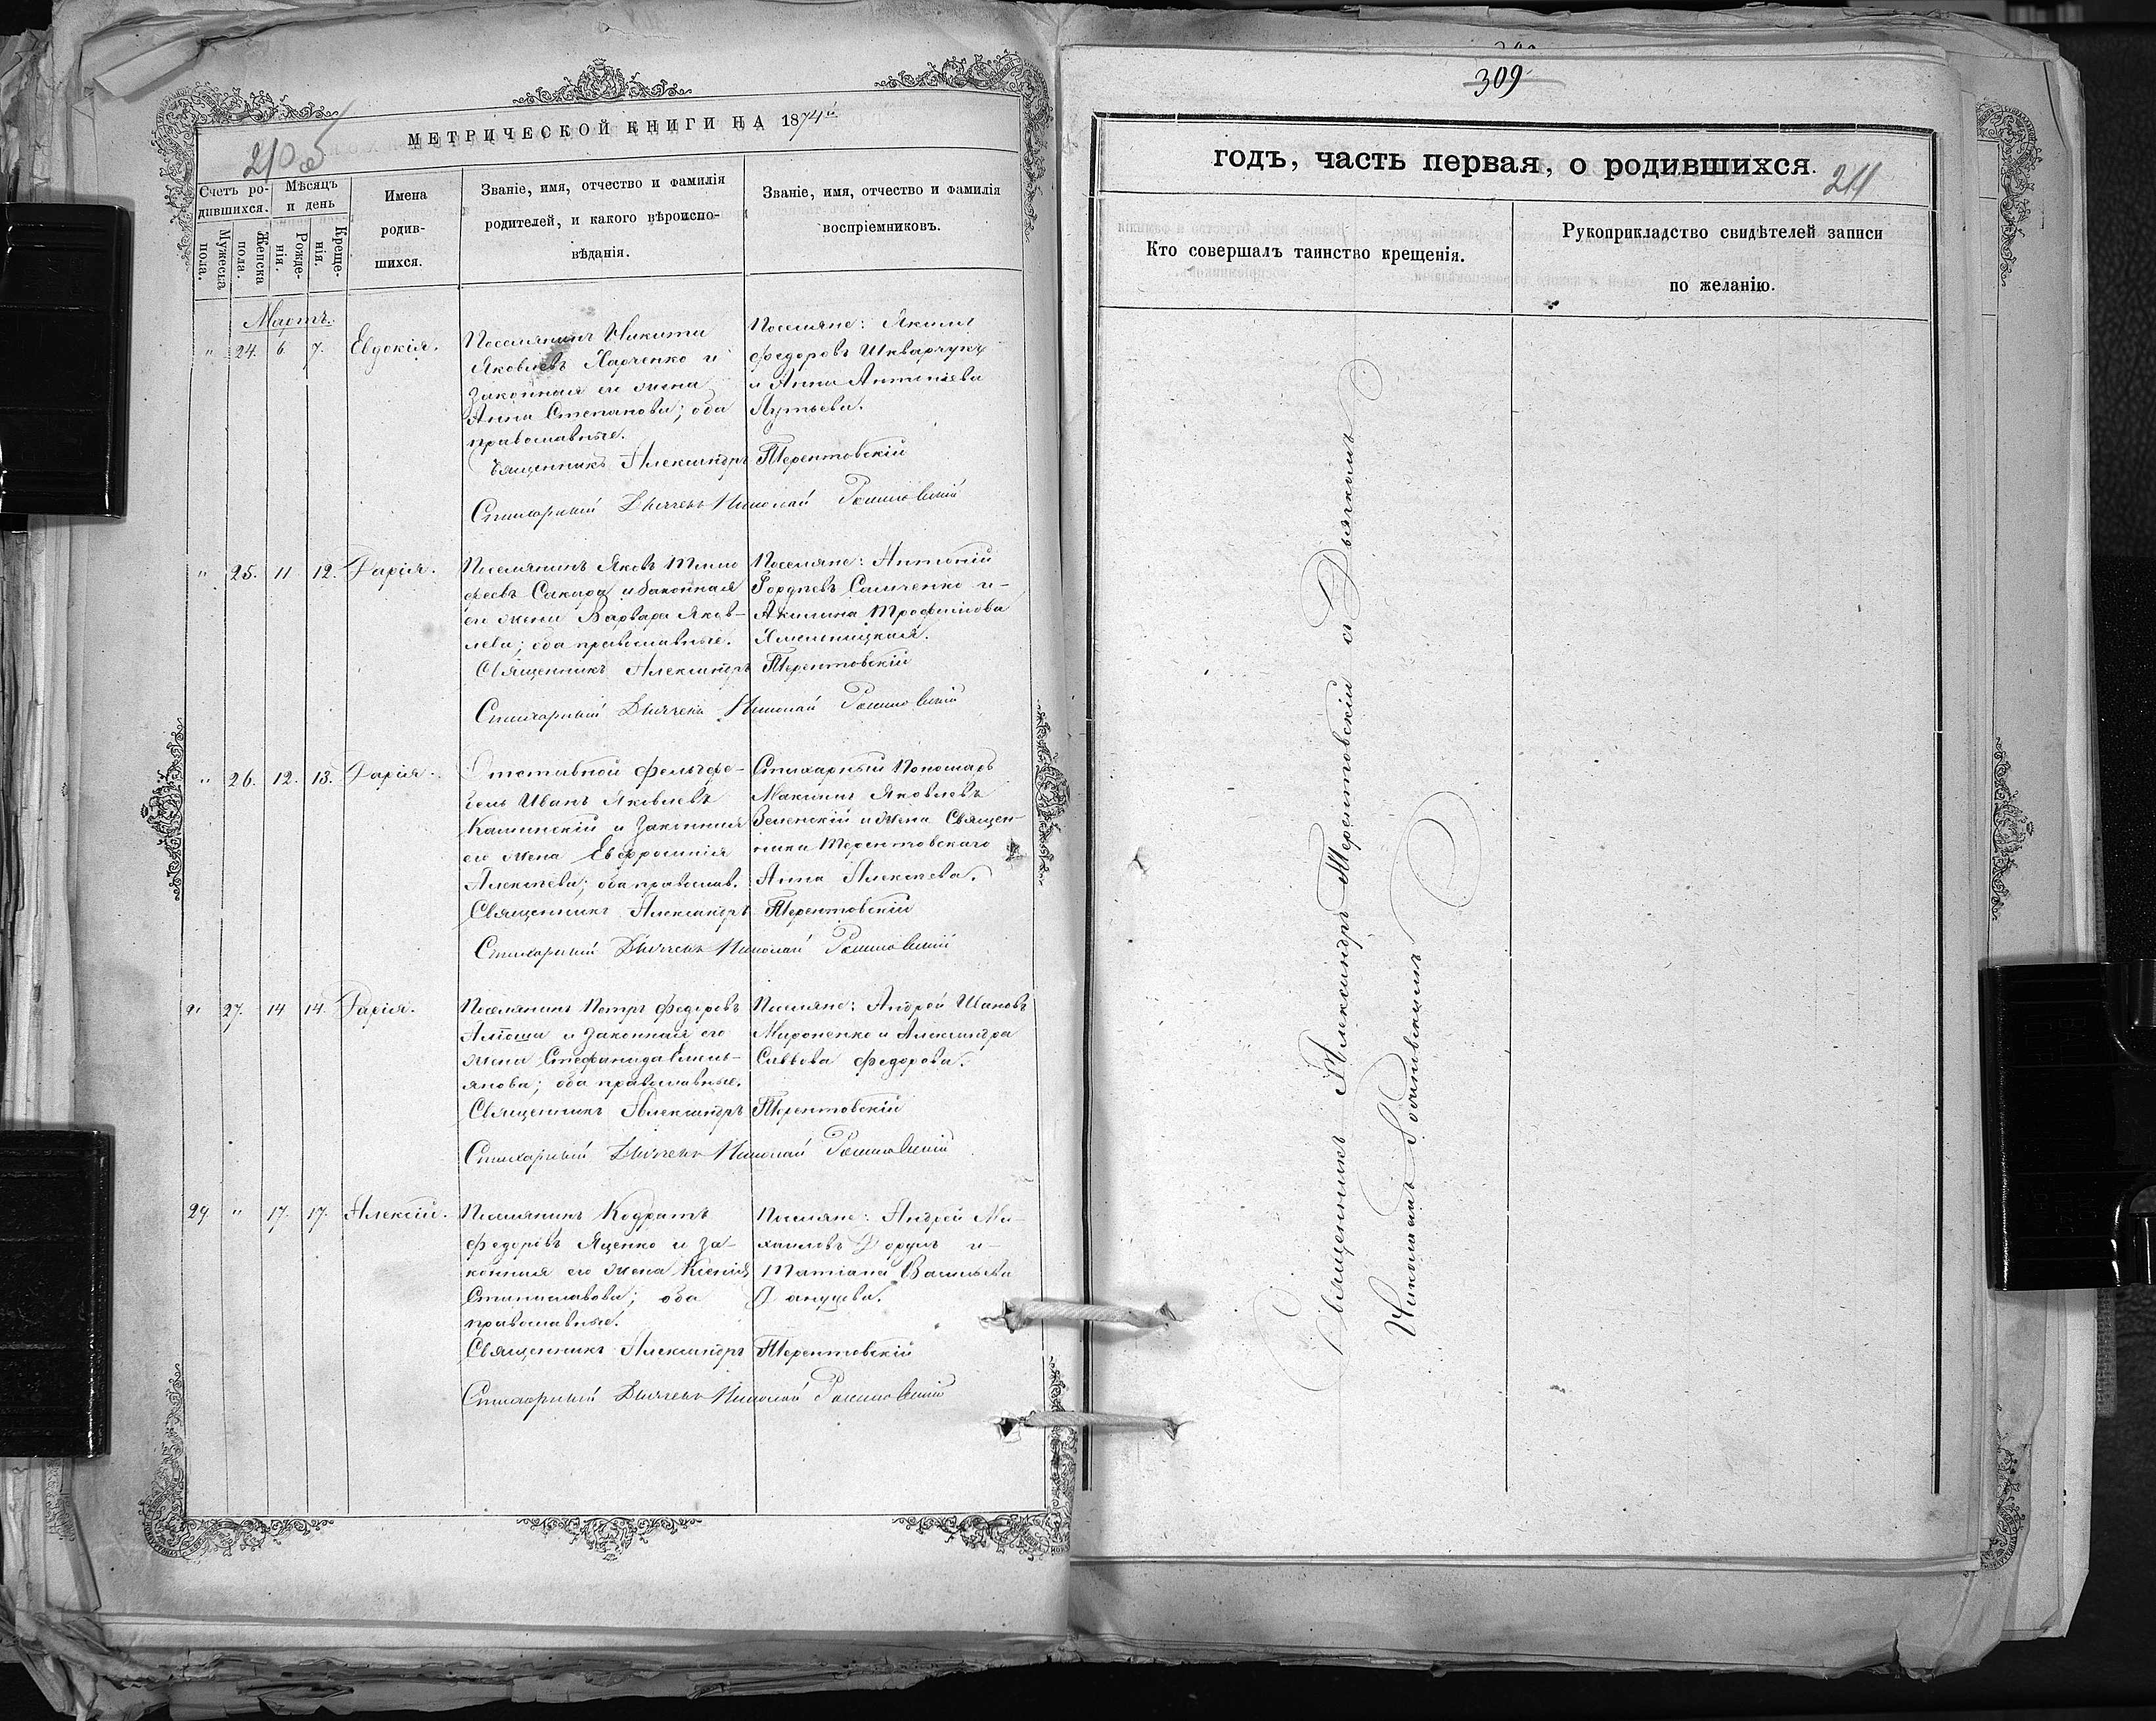 210 об
МЕТРИЧЕСКОЙ КНИГИ НА 1874й
Счетъ ро-
дившихся.
Мѣсяцъ
и день
Мужеска
пола.
Женска
пола.
Рожде-
нія.
Креще-
нія.
Имена
родив-
шихся.
Званіе, имя, отчество и фамилія
родителей, и какого вѣроиспо-
вѣданія.
Званіе, имя, отчество и фамилія
воспріемниковъ.
Мартъ.
" 24. 6 7. Евдокія.
Поселянинъ Никита
Яковлевъ Харченко и
законная его жена
Анна Степанова; оба
православные.
Поселяне: Якимъ
Федоровъ Шкварчукъ
и Анна Антоніева
Священникъ Александръ Терентовскій
Стихарный Дьячекъ Николай
" 25. 11 12. Дарія.
Поселянинъ Яковъ Тимо
феевъ Сакара и законная
его жена Варвара Яков-
лева; оба православные.
Поселяне: Антоній
Гордѣевъ Самченко и-
Акилина Трофимова
Хмельницкая.
Священникъ Александръ Терентовскій
Стихарный Дьячекъ Николай
" 26. 12. 13. Дарія.
Отставной фельдфе-
бель Иванъ Яковлевъ
Калинскій и законная
его жена Евфросинія
Алексѣева; оба правосла.
Стихарный Пономарь
Максимъ Яковлевъ
Зеленскій и жена Священ-
ника Терентовскаго
Анна Алексѣева.
Священникъ Александръ Терентовскій
Стихарный Дьячекъ Николай
" 27. 14 14. Дарія.
Поселянинъ Петръ Федоровъ
Алёша и законная его
жена Стефанида Емель-
янова; оба православные.
Поселяне: Андрей Ивановъ
Мироненко и Александра
Саввова Федорова.
Священникъ Александръ Терентовскій
Стихарный Дьячекъ Николай
29 " 17. 17. Алексій.
Поселянинъ Кодратъ
Федоровъ Яценко и за-
конная его жена Ксенія
Станиславова; оба
православные.
Поселяне: Андрей Ми-
хаиловъ и-
Татіана Васильева
Священникъ Александръ Терентовскій
Стихарный Дьячекъ Николай
309
годъ, часть первая, о родившихся.
211
Кто совершалъ таинство крещенія.
Рукоприкладство свидѣтелей записи
по желанію.
Священникъ Александръ Терентовскій съ Дьячкомъ
Николаемъ